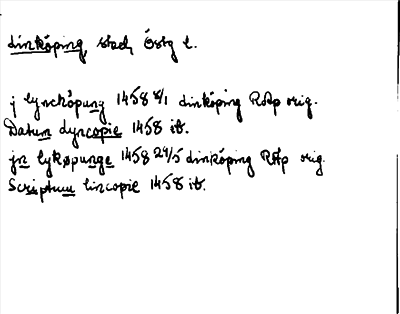 Linköping, stad, Östg l.
j lynchöpung 1458 8/1 Linköping RAp orig.
Datum lyncopie 1458 ib.
jn lykøpunge 1458 29/5 Linköping RAp orig.
Scriptum lincopie 1458 ib.